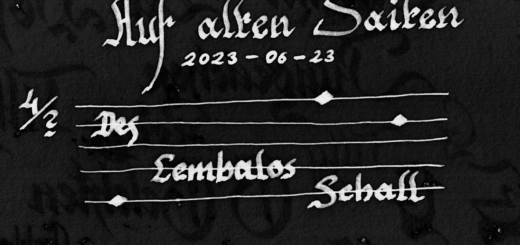 Auf alten Saiten
2023-06-23
4/2
Des
Cembalos
Schall